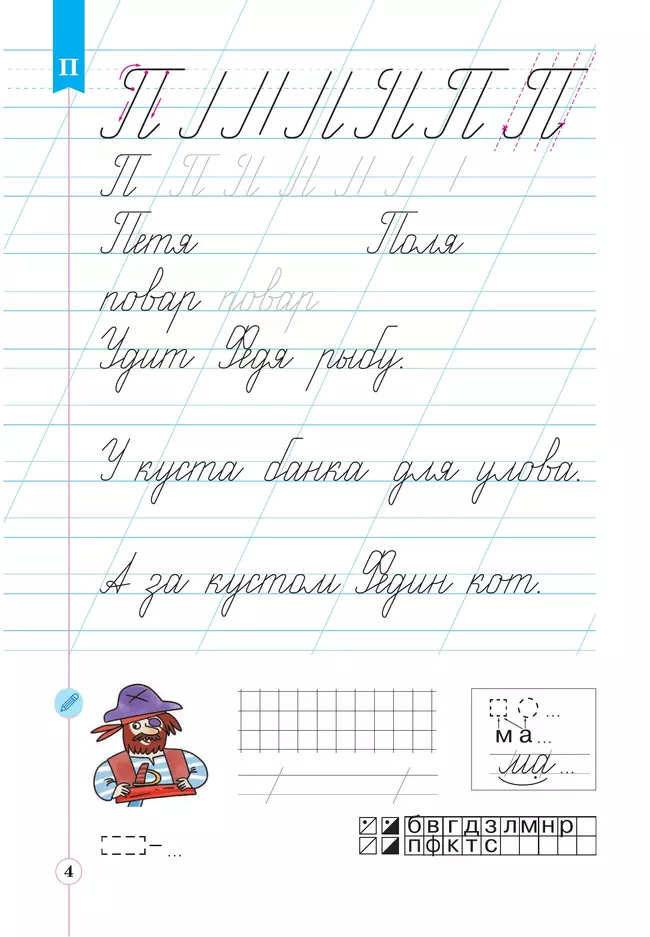 П
П П П П
П П
Петя Поля
повар повар
Удит Федя рыбу.
У куста банка для улова.
А за кустом Федин кот.
...
м а ...
ма ...
б в г д з л м н р
п ф к т с
– ...
4